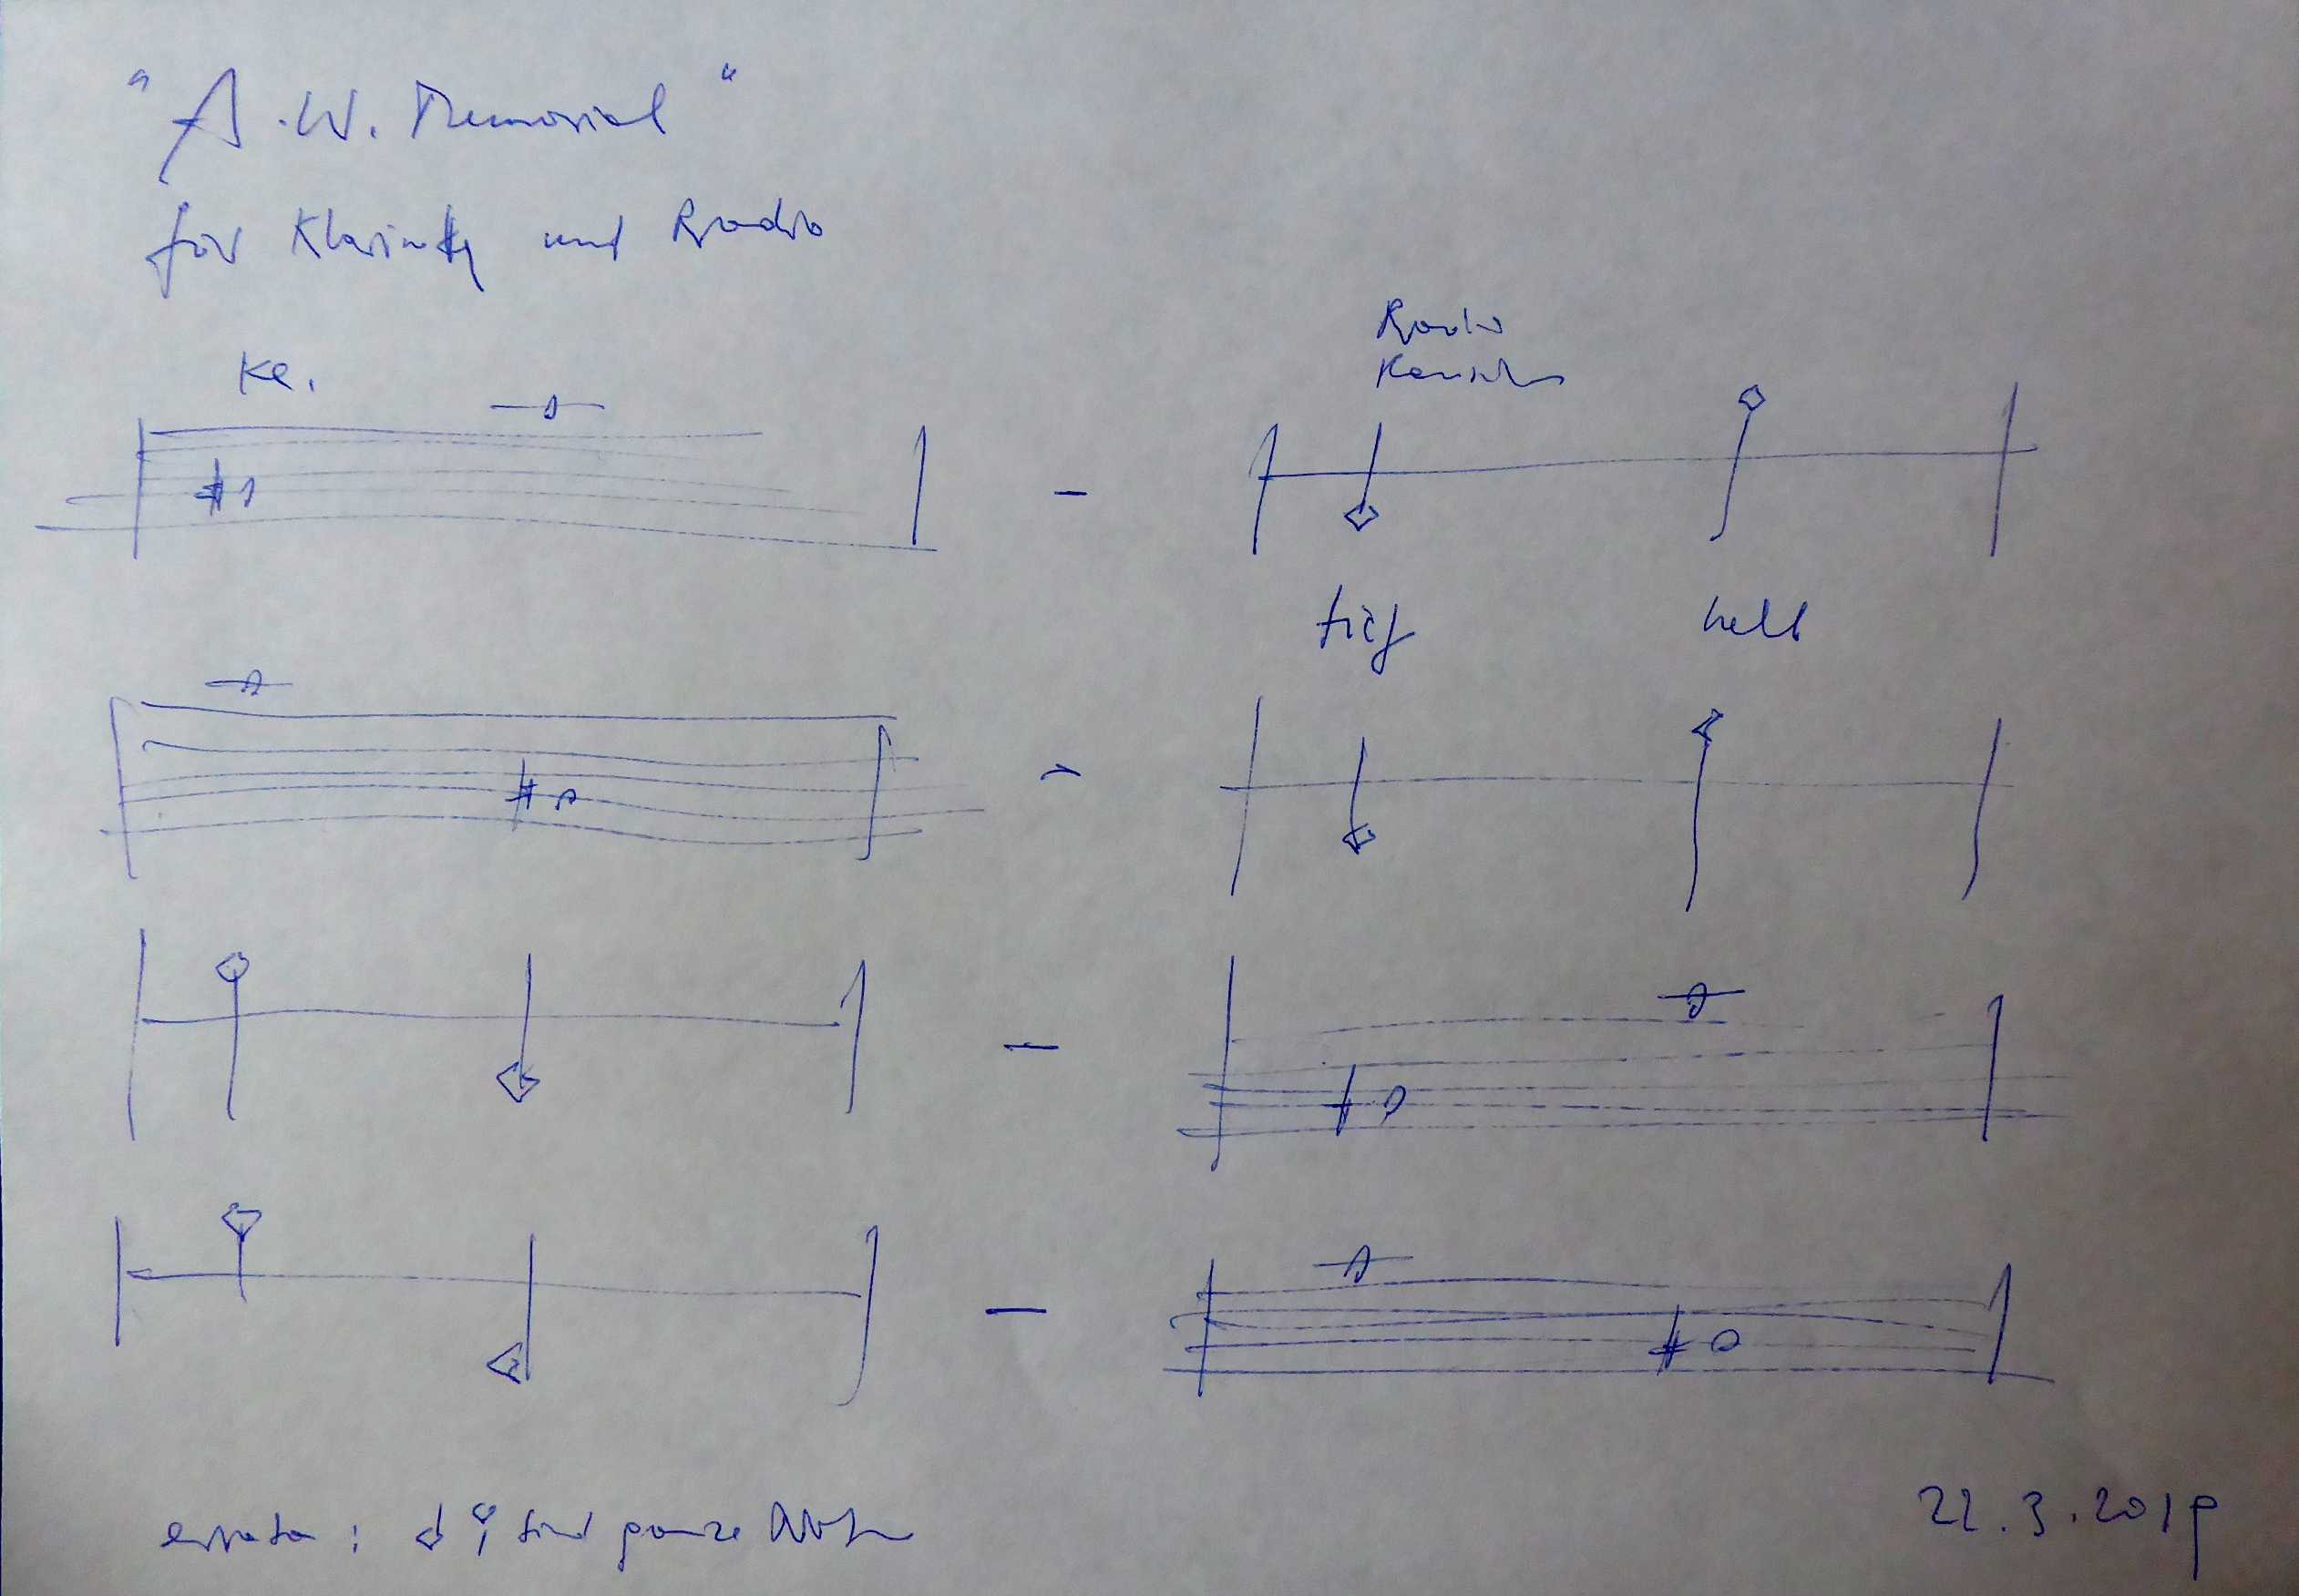 "A.W. Memorial"
für Klarinette und Radio
Kl.
Radio
Rauschen
tief hell
errata: sind ganze Noten
22.3.2019